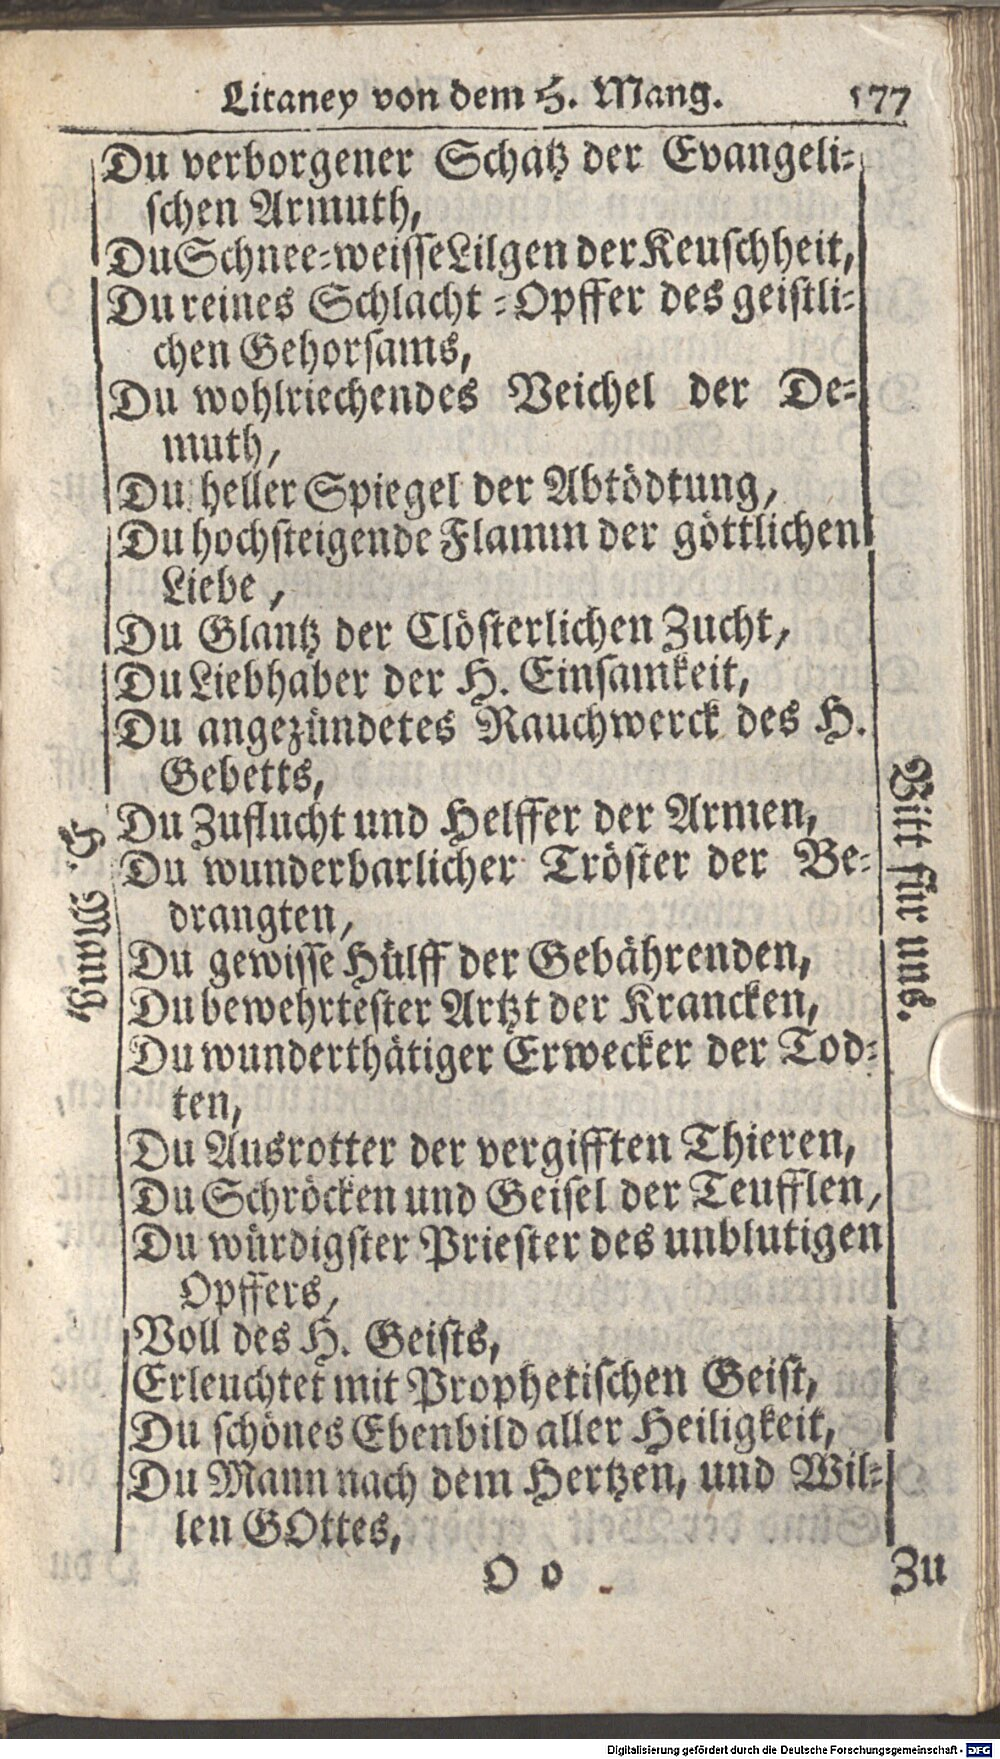 Litaney von dem H. Mang. 577
Du verborgener Schatz der Evangeli-
schen Armuth,
Du Schnee-weisse Lilgen der Keuschheit,
Du reines Schlacht-Opffer des geistli-
chen Gehorsams,
Du wohlriechendes Veichel der De-
muth,
Du heller Spiegel der Abtödtung,
Du hochsteigende Flamm der göttlichen
Liebe,
Du Glantz der Clösterlichen Zucht,
Du Liebhaber der H. Einsamkeit,
Du angezündetes Rauchwerck des H.
Gebetts,
Du Zuflucht und Helffer der Armen,
Du wunderbarlicher Tröster der Be-
drangten,
Du gewisse Hülff der Gebährenden,
Du bewehrtester Artzt der Krancken,
Du wunderthätiger Erwecker der Tod-
ten,
Du Ausrotter der vergifften Thieren,
Du Schröcken und Geisel der Teufflen,
Du würdigster Priester des unblutigen
Opffers,
Voll des H. Geists,
Erleuchtet mit Prophetischen Geist,
Du schönes Ebenbild aller Heiligkeit,
Du Mann nach dem Hertzen, und Wil-
len GOttes,
H. Mang
Bitt für uns.
O o
Zu
Digitalisierung gefördert durch die Deutsche Forschungsgemeinschaft - DFG